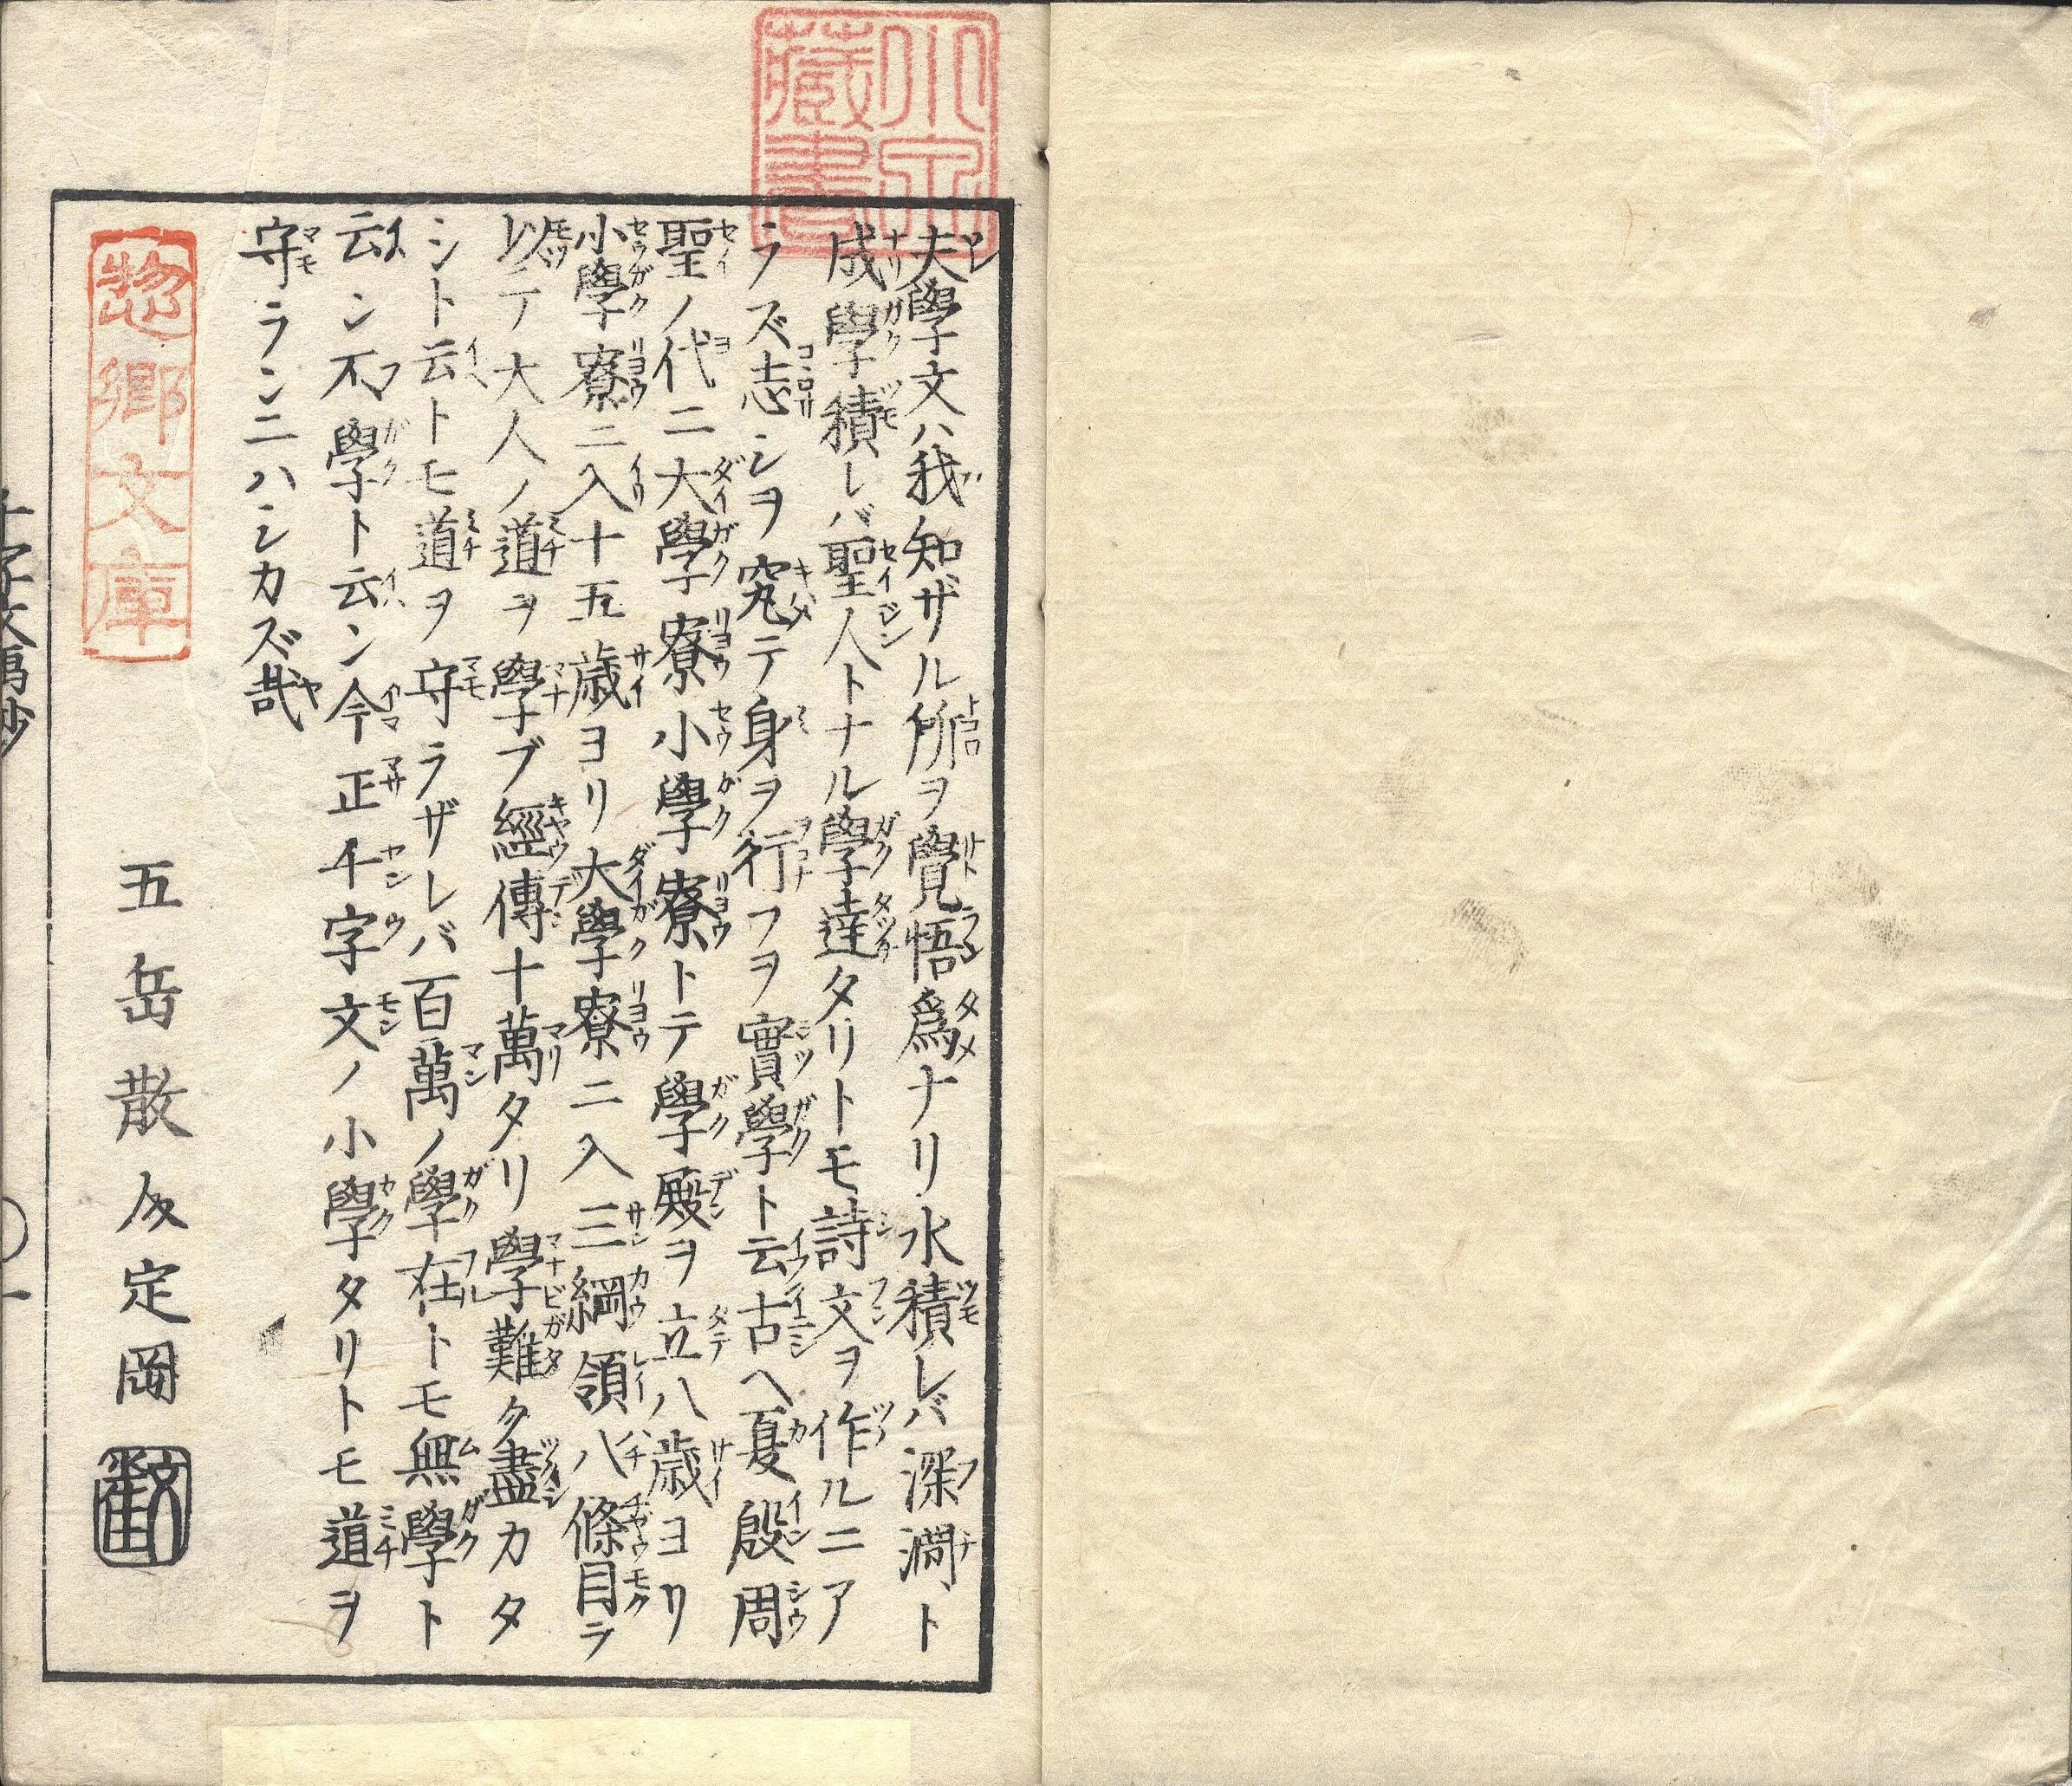 夫學文ハ我知ザル所ヲ覺悟為ナリ水積レバ深澗ト
成學積レバ聖人トナル學達タリトモ詩文ヲ作ルニア
ラズ志シヲ究テ身ヲ行フヲ實學ト云古ヘ夏殷周
聖ノ代ニ大學寮小學寮トテ學殿ヲ立八歳ヨリ
小學寮ニ入十五歳ヨリ大學寮ニ入三綱領八條目ヲ
以テ大人ノ道ヲ學ブ經傳十萬タリ學難タ盡カタ
シト云トモ道ヲ守ラザレバ百萬ノ學在トモ無學ト
云ン不學ト云ン今正千字文ノ小學タリトモ道ヲ
守ランニハシカズ哉
五岳散人定岡
惣郷文庫
藏書